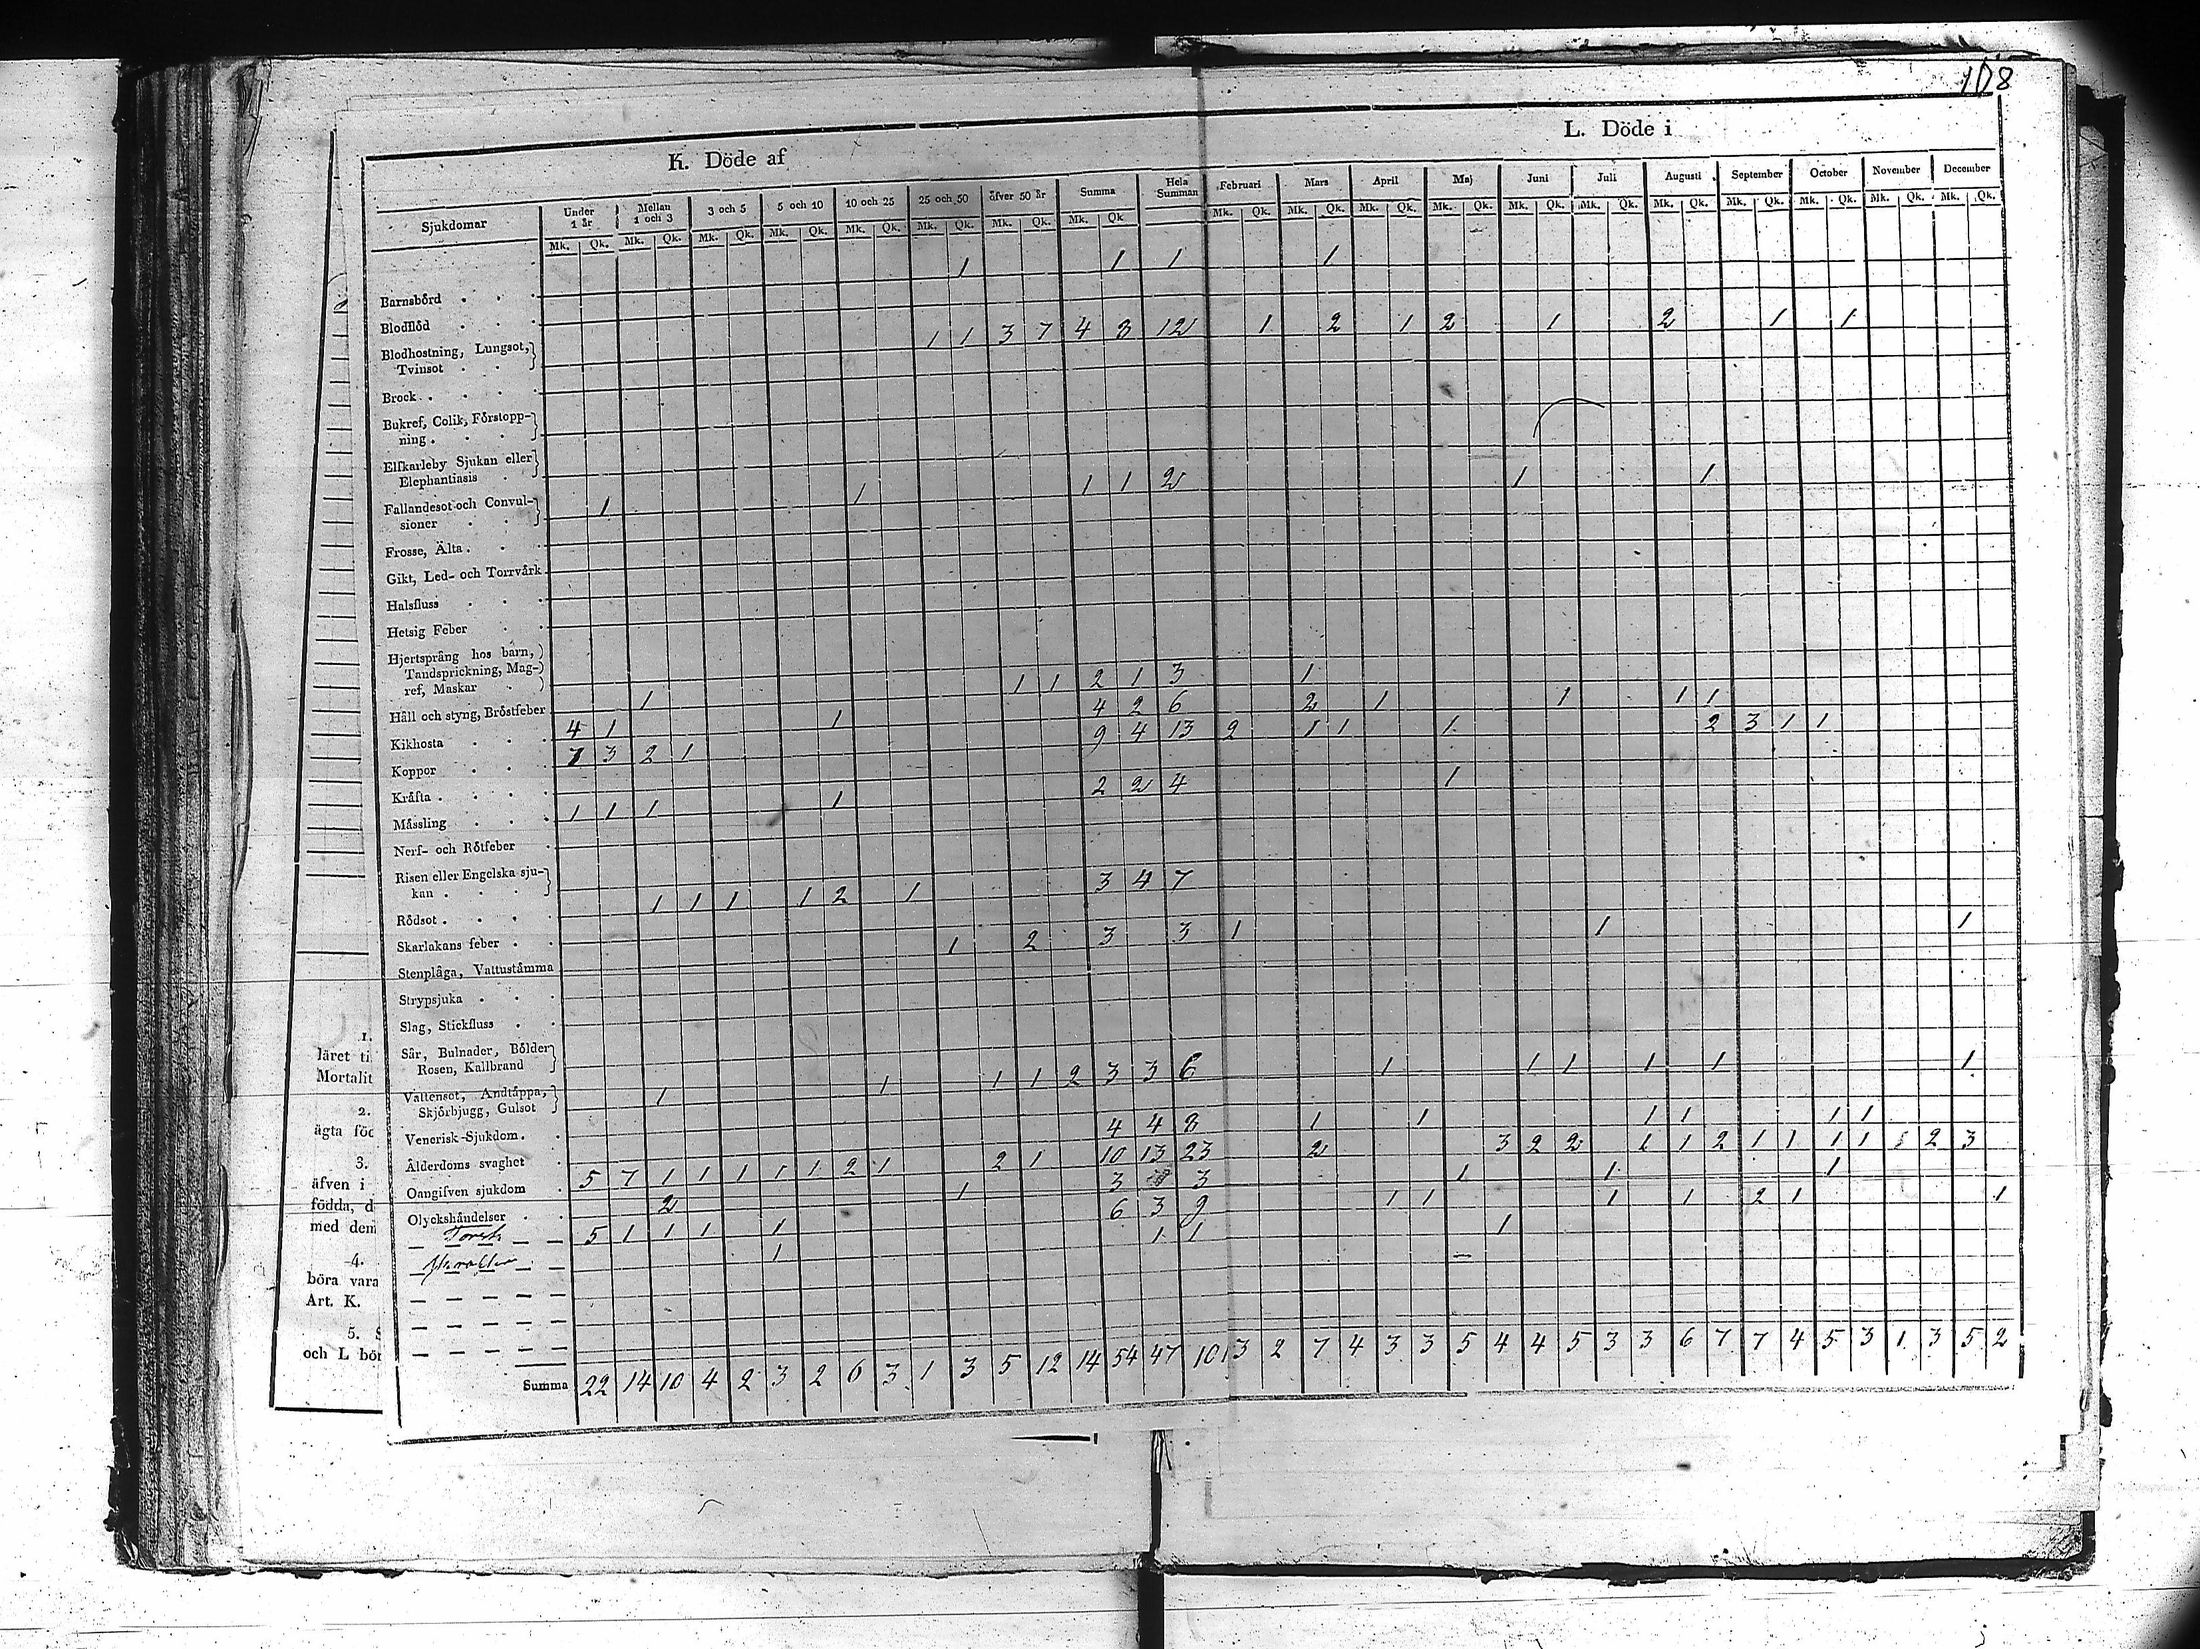 108
K. Döde af
L. Döde i
Sjukdomar
Under 1 år
Mellan 1 och 3
3 och 5
5 och 10
10 och 25
25 och 50
åfver 50 år
Summa
Hela Summan
Februari
Mars
April
Maj
Juni
Juli
Augusti
September
October
November
December
Mk. Qk. Mk. Qk. Mk. Qk. Mk. Qk. Mk. Qk. Mk. Qk. Mk. Qk. Mk. Qk. Mk. Qk. Mk. Qk. Mk. Qk. Mk. Qk. Mk. Qk. Mk. Qk. Mk. Qk. Mk. Qk. Mk. Qk. Mk. Qk. Mk. Qk.
1 1 1 1
Barnsbörd
Blodflöd
1 1 3 7 4 8 12 1 2 1 2 1 2 1 1
Blodhostning, Lungsot,
Tvinsot
Brock
Bukref, Colik, Förstopp-
ning
Elfkarleby Sjukan eller
Elephantiasis
1 1 1 1 2 1 1
Fallandesot och Convul-
sioner
Frosse, Älta
Gikt, Led- och Torrvärk
Halsfluss
Hetsig Feber
Hjertsprång hos barn,
Tandsprickning, Mag-
ref, Maskar
1 1 1 2 1 3 1
Håll och styng, Bröstfeber
4 1 1 4 2 6 2 1 1 1 1
Kikhosta
7 3 2 1 9 4 13 2 1 1 1 2 3 1 1
Koppor
Kräfta
1 1 1 1 2 2 4 1
Måssling
Nerf- och Rötfeber
Risen eller Engelska sju-
kan
1 1 1 1 2 1 3 4 7
Rödsot
Skarlakans feber
1 2 3 3 1 1 1
Stenplåga, Vattustämma
Strypsjuka
Slag, Stickfluss
Sår, Bulnader, Bölder
Rosen, Kallbrand
1 1 1 1 2 3 3 6 1 1 1 1 1 1
Vattensot, Andtäppa,
Skjörbjugg, Gulsot
Venerisk-Sjukdom
4 4 8 1 1 1 1 1 1
Ålderdoms svaghet
5 7 1 1 1 1 1 2 1 2 1 10 13 23 2 3 2 2 1 1 2 1 1 1 1 2 3
Oangifven sjukdom
2 1 3 3 1 1 1
Olyckshändelser
5 1 1 1 1 6 3 9 1 1 1 1 2 1 1
1 1 1 1
Summa 22 14 10 4 2 3 2 6 3 1 3 5 12 14 54 47 101 3 2 7 4 3 3 5 4 4 5 3 3 6 7 7 4 5 3 1 3 5 2
1.
läret ti
Mortalit
2.
ägta föd
3.
äfven i
födda, d
med dem
4.
böra vara
Art. K.
5. S
och L bör